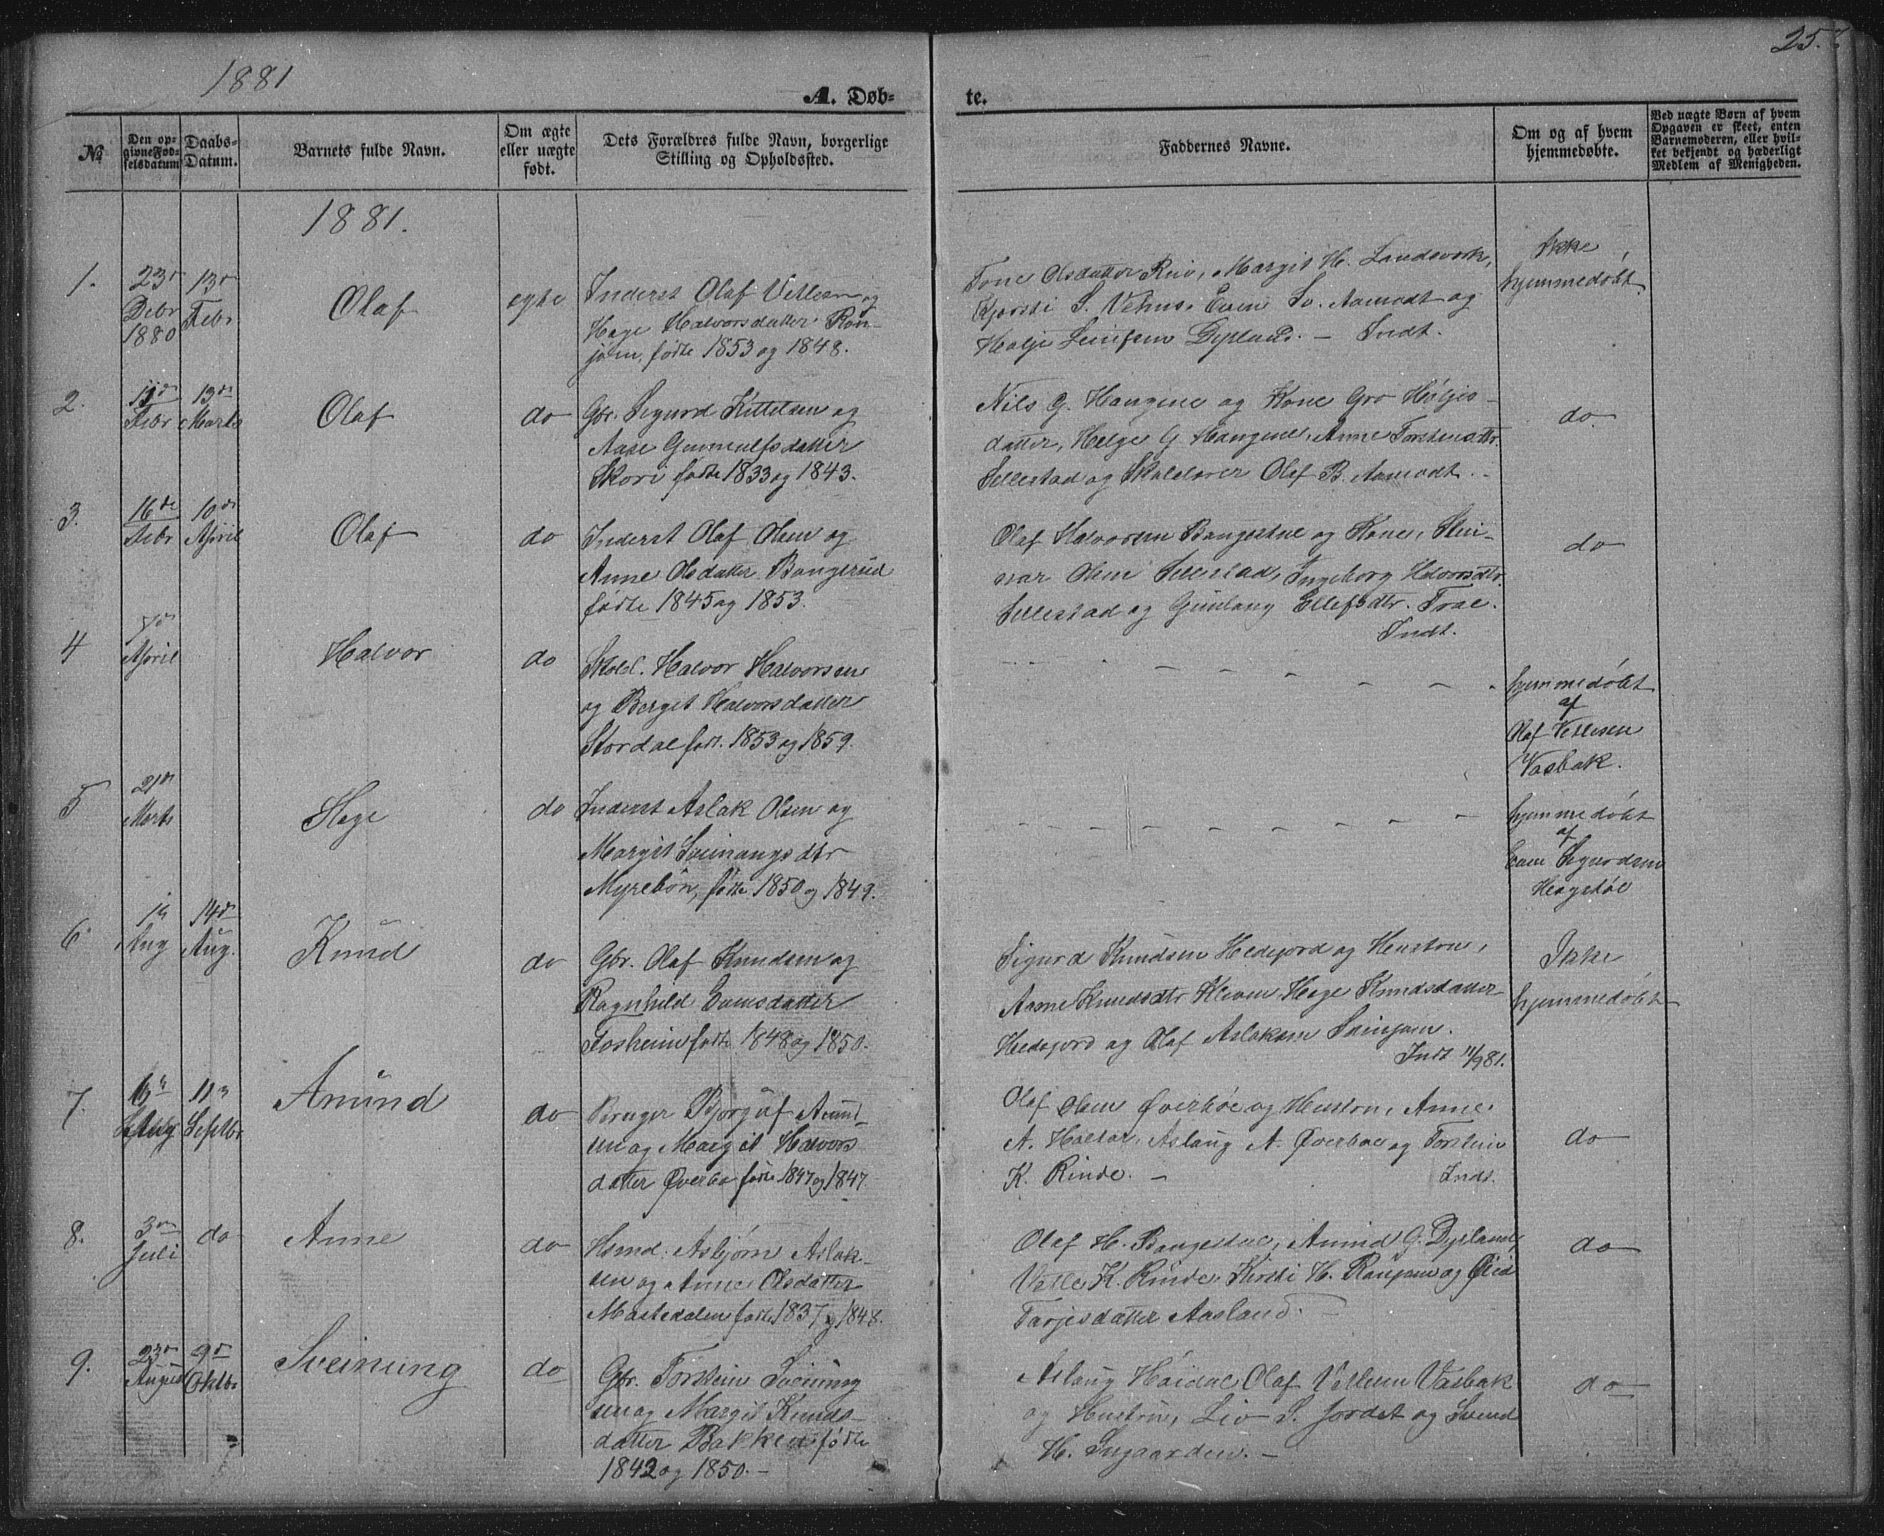 25
1881
A. Døb-
te.
No
Den op-
givne Fød-
selsdatum
Daabs-
Datum.
Barnets fulde Navn.
Om ægte
eller uægte
født.
Dets Forældres fulde Navn, borgerlige
Stilling og Opholdssted.
Faddernes Navne.
Om og af hvem
hjemmedøbte.
Ved uægte Børn af hvem
Opgaven er skeet, enten
Barnemoderen, eller hvil-
ket bekjendt og hæderligt
Medlem af Menigheden.
1881.
1.
23de
Debr
1880
13de
Febr
Olaf
egte
Inderst Olaf Vetlesen og
Hæge Halvorsdatter
fødte 1853 og 1848.
Tone Olsdatter Margit H. Landsverk,
S. Even Sv. Aamodt og
Dyrland. — Indt.
Ikke
hjemmedøbt
2.
Febr
13de
Marts
Olaf
do
Gbr. Sigurd Kittelsen og
Aase Gunnulfsdatter
Skori fødte 1833 og 1843.
Nils G. Haugene og Kone Gro Høljes-
datter, Helge G Haugene, Anne Torstensdtr.
Sellestad og Skolelærer Olaf B. Aamodt. -
do.
3.
16de
Febr
10de
April
Olaf
do
Inderst Olaf Olsen og
Anne Olsdatter Bangerud
fødte 1845 og 1853.
Olaf Halvorsen Bangestue og Kone, Stei-
nar Olsen Sellestad, Ingeborg Halvorsdtr.
Sellestad og Gunlaug Ellefsdtr. Trae.
Indt.
do
4
7de
April
Halvor
do
Skolel. Halvor Halvorsen
og Berget Halvorsdatter
Stordal født. 1853 og 1859.
hjemmedøbt
af
Olaf Vetlesen
Vasbak.
5
21de
Marts
Hæge
do
Inderst Aslak Olsen og
Margit Sveinungsdtr
Myrebøn, fødte 1850 og 1849.
hjemmedøbt
af
Even Sigurdsen
Hægstøl
6
Aug
14de
Aug.
Knud
do
Gbr. Olaf Knudsen og
Ragnhild Evensdatter
Fosheim fødte 1848 og 1850.
Sigurd Knudsen Hedejord og Hustru,
Anne Knudsdtr Kleven, Hæge Knudsdatter
Hedejord og Olaf Aslaksen
Indt 11/9 81.
Ikke
hjemmedøbt
7.
Aug
11
Septbr
Anund
do
Bruger Bjorguf Anund-
sen og Margit Halvors-
datter Øverbø fødte 1847 og 1847.
Olaf Olsen Øverbøe og Hustru, Anne
A. Aslaug A. Øverbøe og Torstein
K. Rinde. — Indt.
do
8.
3die
Juli
do
Anne
do
Hsmd. Asbjørn Aslak-
sen og Anne Olsdatter
Mostedalen fødte 1837 og 1848.
Olaf H. Bangestue, Anund G. Dyrland,
Vetle K. Rinde, Kirsti H. og
Tarjesdatter Aasland.
do
9.
23de
August
9de
Oktbr
Sveinung
do
Gbr. Torstein Sveinung-
sen og Margit Knuds-
datter Bakken fødte
1842 og 1850. —
Aslaug Høidal, Olaf Vetlesen Vasbak
og Hustru, Liv S. Jordet og Svend
H. —
do